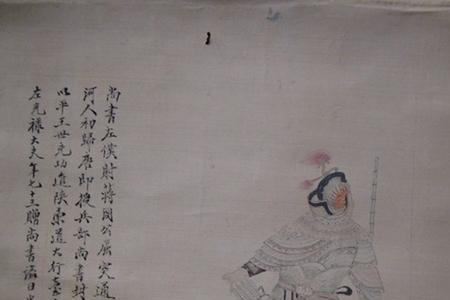 尚書左僕射蔣國公屈突通
河人初歸唐即授兵部尚書封
以平王世充功進陝東道大行臺
左光祿大夫年七十三贈尚書謚曰